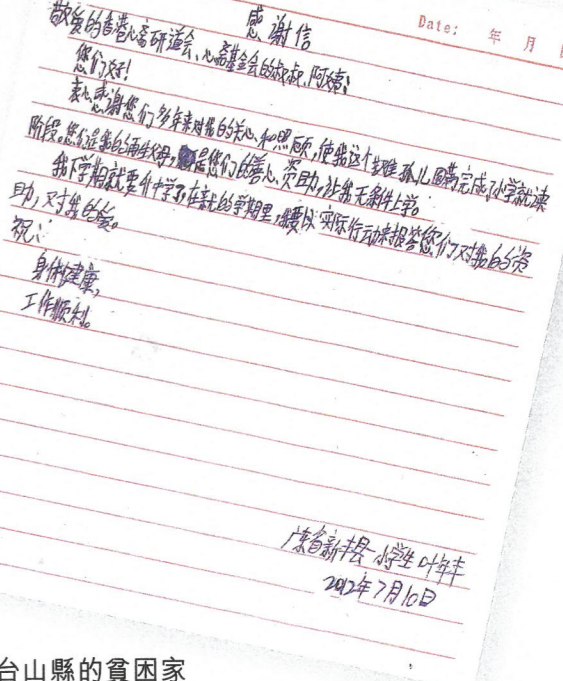 感谢信
Date: 年 月
敬爱的香港心斋研道会、心斋基金会的叔叔、阿姨:
您们好!
衷心感谢您们多年来对我的关心和照顾,使我这个 孤儿圆满完成了小学就读
阶段。您们是我的 父母,是您们的善心、资助,让我无条件上学。
我下学期就要升中学了,在新的学期里,我要以实际行动来报答您们对我的资
助,对我的爱。
祝:
身体健康,
工作顺利。
广东省新丰县一小学生 叶年丰
2012年7月10日
台山縣的貧困家